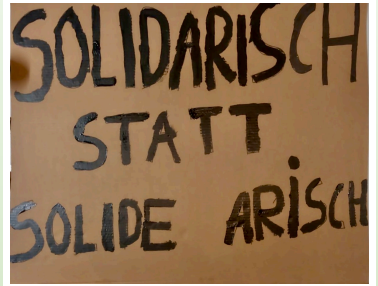 SOLIDARISCH
STATT
SOLIDE ARiSCH